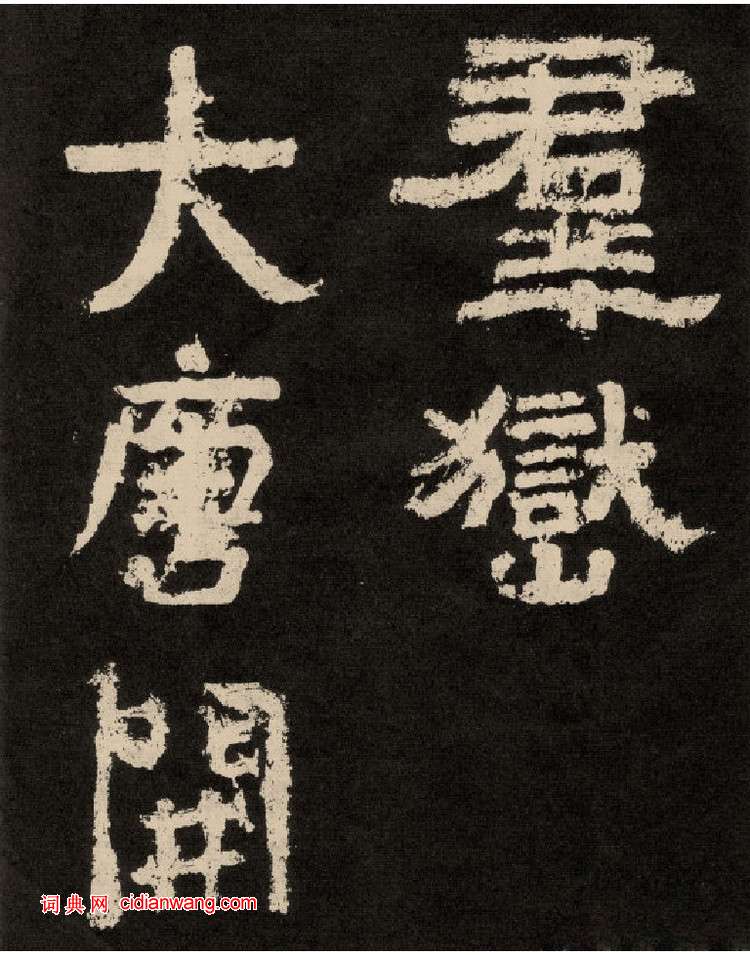 羣嶽
大唐開
词典网 cidianwang.com